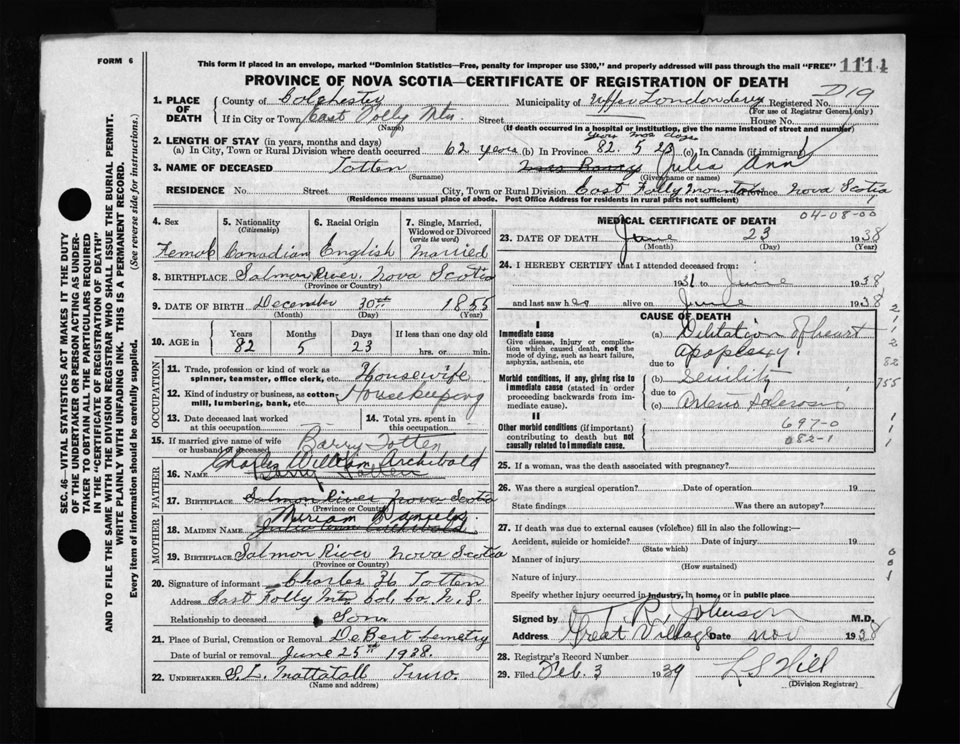 FORM 6
This form if placed in an envelope, marked "Dominion Statistics—Free, penalty for improper use $300," and properly addressed will pass through the mail "FREE" 1114
PROVINCE OF NOVA SCOTIA—CERTIFICATE OF REGISTRATION OF DEATH
D19
1. PLACE OF DEATH
County of Colchester Municipality of Upper Londonderry Registered No.
(For use of Registrar General only)
If in City or Town East Folly Mtn. Street House No.
(Name) (If death occurred in a hospital or institution, give the name instead of street and number)
2. LENGTH OF STAY (in years, months and days) years mos days
(a) In City, Town or Rural Division where death occurred 62 years (b) In Province 82. 5 23 (c) In Canada (if immigrant)
3. NAME OF DECEASED Totten Julia Ann
(Surname) (Given name or names)
RESIDENCE No. Street City, Town or Rural Division East Folly Mountain Province Nova Scotia
(Residence means usual place of abode. Post Office Address for residents in rural parts not sufficient)
4. Sex 5. Nationality (Citizenship) 6. Racial Origin 7. Single, Married, Widowed or Divorced (write the word)
Female Canadian English Married
8. BIRTHPLACE Salmon River, Nova Scotia
(Province or Country)
9. DATE OF BIRTH December 30th 1855
(Month) (Day) (Year)
10. AGE in Years Months Days If less than one day old
82 5 23 hrs. or min.
OCCUPATION
11. Trade, profession or kind of work as spinner, teamster, office clerk, etc. Housewife
12. Kind of industry or business, as cotton mill, lumbering, bank, etc. Housekeeping
13. Date deceased last worked at this occupation 14. Total yrs. spent in this occupation
15. If married give name of wife or husband of deceased Barry Totten
FATHER
16. NAME Charles William Archibald
17. BIRTHPLACE Salmon River Nova Scotia
(Province or Country)
MOTHER
18. MAIDEN NAME Miriam Daniels
19. BIRTHPLACE Salmon River Nova Scotia
(Province or Country)
20. Signature of informant Charles H Totten
Address East Folly Mtn Col. Co. N.S.
Relationship to deceased Son
21. Place of Burial, Cremation or Removal DeBert Cemetry
Date of burial or removal June 25th 1938.
22. UNDERTAKER S.L. Mattatall Truro.
(Name and address)
MEDICAL CERTIFICATE OF DEATH 04-08-00
23. DATE OF DEATH June 23 1938
(Month) (Day) (Year)
24. I HEREBY CERTIFY that I attended deceased from:
1931 to June 1938
and last saw her alive on June 1938
CAUSE OF DEATH
I
Immediate cause
Give disease, injury or complication which caused death, not the mode of dying, such as heart failure, asphyxia, asthenia, etc
(a) Dilitation of heart
Apoplexy.
due to
Morbid conditions, if any, giving rise to immediate cause (stated in order proceeding backwards from immediate cause).
(b) Senility
due to
(c) Arterio Sclerosis
II
Other morbid conditions (if important) contributing to death but not causally related to immediate cause.
697-0
082-1
25. If a woman, was the death associated with pregnancy?
26. Was there a surgical operation? Date of operation 19
State findings Was there an autopsy?
27. If death was due to external causes (violence) fill in also the following:—
Accident, suicide or homicide? Date of injury 19
(State which)
Manner of injury
(How sustained)
Nature of injury
Specify whether injury occurred in industry, in home, or in public place
Signed by T R Johnson M.D.
Address Great Village Date Nov 1938
28. Registrar's Record Number
29. Filed Feb. 3 1939 L S Hill
(Division Registrar)
SEC. 46—VITAL STATISTICS ACT MAKES IT THE DUTY
OF THE UNDERTAKER OR PERSON ACTING AS UNDER-
TAKER TO OBTAIN ALL THE PARTICULARS REQUIRED
IN THE "CERTIFICATE OF REGISTRATION OF DEATH"
AND TO FILE THE SAME WITH THE DIVISION REGISTRAR WHO SHALL ISSUE THE BURIAL PERMIT.
WRITE PLAINLY WITH UNFADING INK. THIS IS A PERMANENT RECORD.
Every item of information should be carefully supplied. (See reverse side for instructions.)